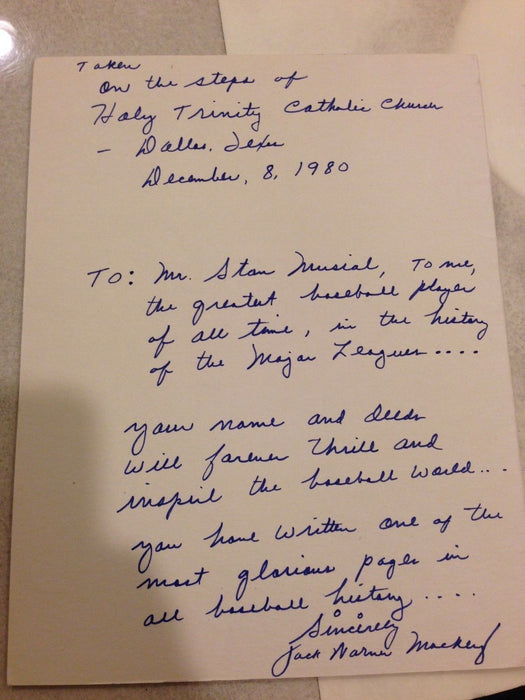 Taken
on the steps of
Holy Trinity Catholic Church
- Dallas, Texas
December, 8, 1980
TO: Mr. Stan Musial, To me,
the greatest baseball player
of all time, in the history
of the Major Leagues....
your name and deeds
will forever thrill and
inspire the baseball world...
you have written one of the
most glorious pages in
all baseball history.....
Sincerely
Jack Warner